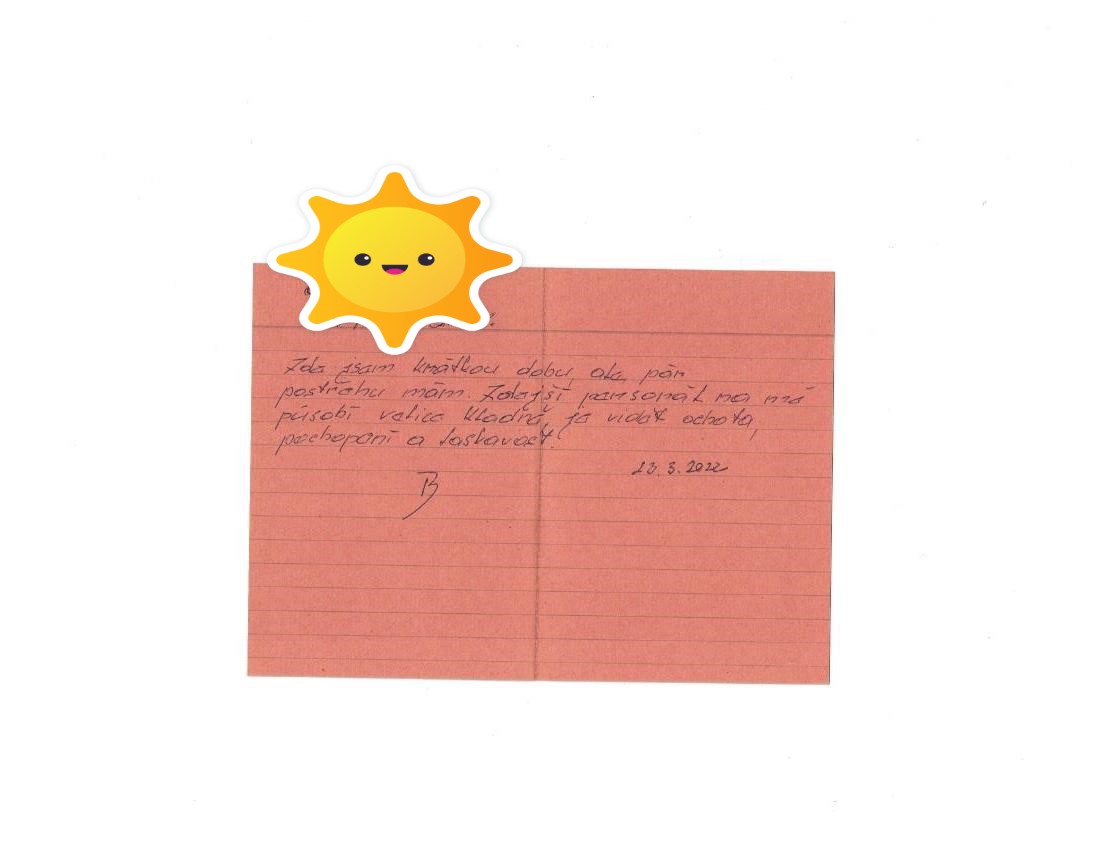 Zde jsem krátkou dobu ale pár
postřehů mám. Zdejší personál na mě
působí velice kladně, je vidět ochota,
pochopení a laskavost!
23. 3. 2022
B